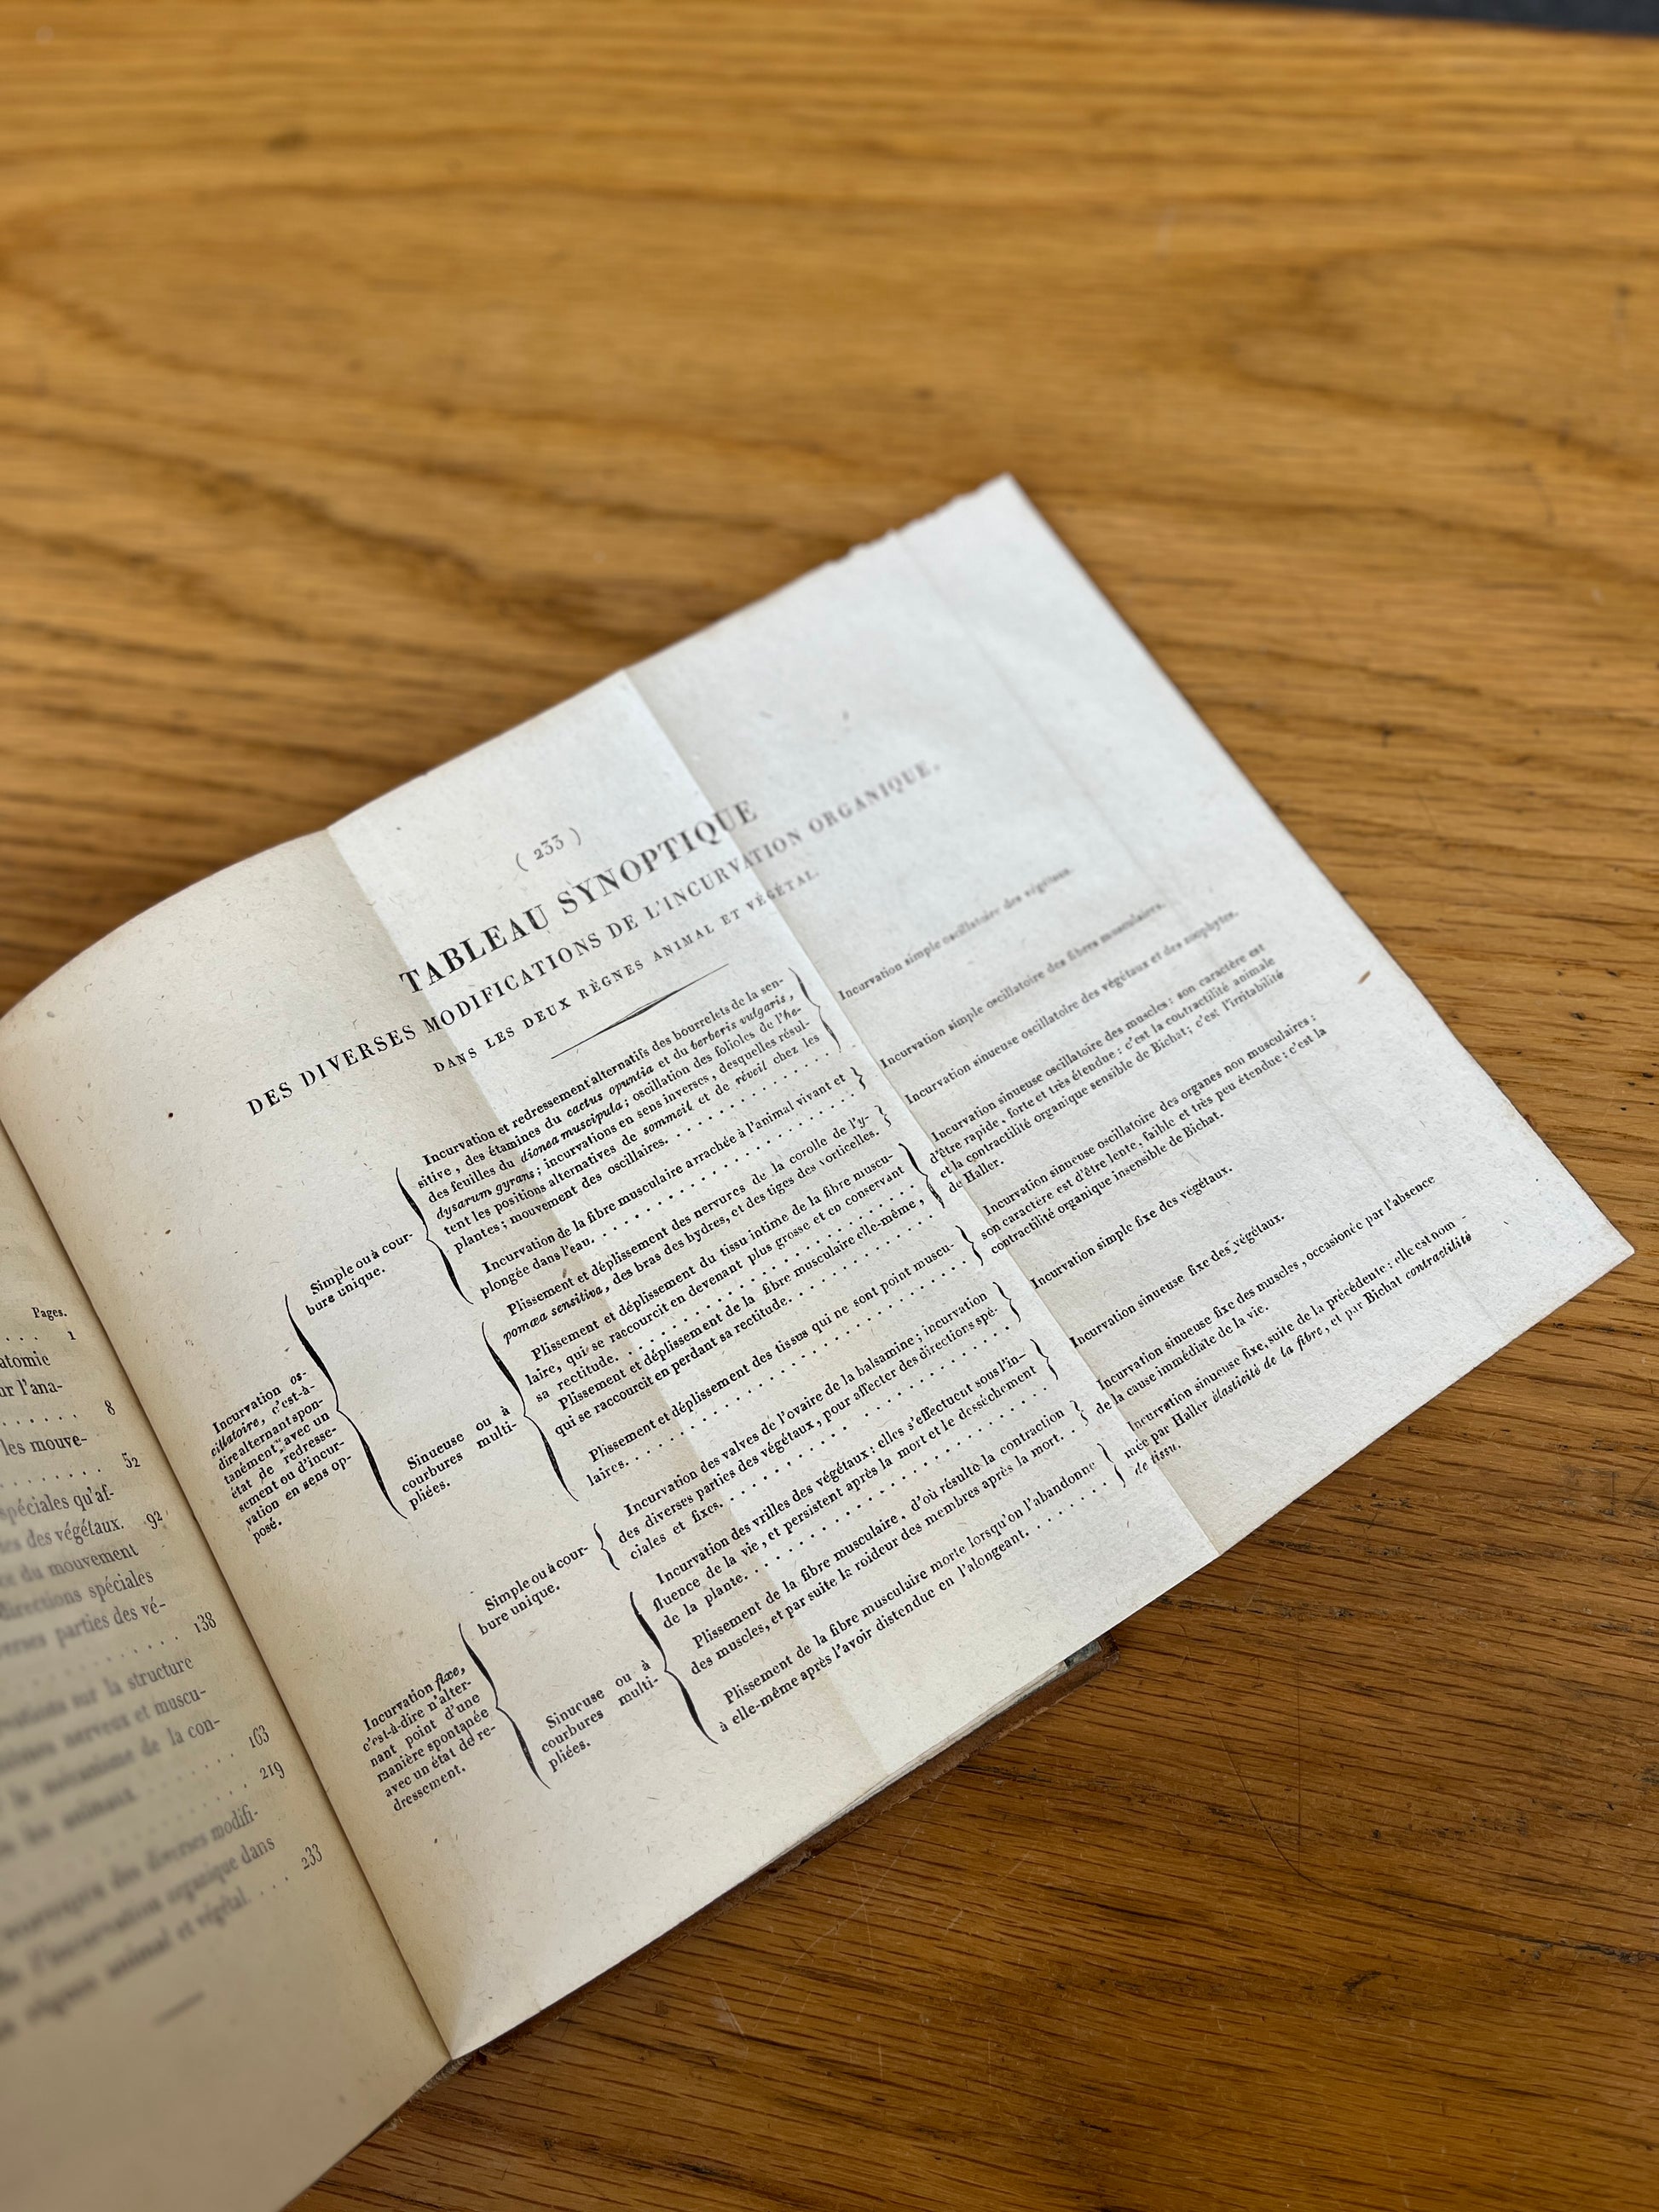 Pages.
. . . . 1
atomie
ur l'ana-
. . . . . . 8
les mouve-
. . . . . . . 52
spéciales qu'af-
des végétaux. 92
du mouvement
directions spéciales
parties des vé-
. . . . . . 138
sur la structure
nerveux et muscu-
de la con-
. . . . 163
. . . . . . 219
des diverses modifi-
l'incurvation organique dans
règnes animal et végétal. . . . 233
( 233 )
TABLEAU SYNOPTIQUE
DES DIVERSES MODIFICATIONS DE L'INCURVATION ORGANIQUE.
DANS LES DEUX RÈGNES ANIMAL ET VÉGÉTAL.
Incurvation os-
cillatoire, c'est-à-
dire alternant spon-
tanément avec un
état de redresse-
sement ou d'incur-
vation en sens op-
posé.
Simple ou à cour-
bure unique.
Incurvation et redressement alternatifs des bourrelets de la sen-
sitive, des étamines du cactus opuntia et du berberis vulgaris,
des feuilles du dionea muscipula; oscillation des folioles de l'he-
dysarum gyrans; incurvations en sens inverses, desquelles résul-
tent les positions alternatives de sommeil et de réveil chez les
plantes; mouvement des oscillaires. . . . . . . . . . . . . . . .
Incurvation simple oscillatoire des végétaux.
Incurvation de la fibre musculaire arrachée à l'animal vivant et
plongée dans l'eau. . . . . . . . . . . . . . . . . . . . . .
Incurvation simple oscillatoire des fibres musculaires.
Sinueuse ou à
courbures multi-
pliées.
Plissement et déplissement des nervures de la corolle de l'y-
pomœa sensitiva, des bras des hydres, et des tiges des vorticelles.
Incurvation sinueuse oscillatoire des végétaux et des zoophytes.
Plissement et déplissement du tissu intime de la fibre muscu-
laire, qui se raccourcit en devenant plus grosse et en conservant
sa rectitude. . . . . . . . . . . . . . . . . . . . . .
Plissement et déplissement de la fibre musculaire elle-même,
qui se raccourcit en perdant sa rectitude. . . . . . . . . . .
Incurvation sinueuse oscillatoire des muscles: son caractère est
d'être rapide, forte et très étendue; c'est la contractilité animale
et la contractilité organique sensible de Bichat; c'est l'irritabilité
de Haller.
Plissement et déplissement des tissus qui ne sont point muscu-
laires. . . . . . . . . . . . . . . . . . . . . . . . .
Incurvation sinueuse oscillatoire des organes non musculaires:
son caractère est d'être lente, faible et très peu étendue; c'est la
contractilité organique insensible de Bichat.
Incurvation fixe,
c'est-à-dire n'alter-
nant point d'une
manière spontanée
avec un état de re-
dressement.
Simple ou à cour-
bure unique.
Incurvation des valves de l'ovaire de la balsamine; incurvation
des diverses parties des végétaux, pour affecter des directions spé-
ciales et fixes. . . . . . . . . . . . . . . . . . . . . .
Incurvation simple fixe des végétaux.
Sinueuse ou à
courbures multi-
pliées.
Incurvation des vrilles des végétaux: elles s'effectuent sous l'in-
fluence de la vie, et persistent après la mort et le dessèchement
de la plante. . . . . . . . . . . . . . . . . . . . . . .
Incurvation sinueuse fixe des végétaux.
Plissement de la fibre musculaire, d'où résulte la contraction
des muscles, et par suite la roideur des membres après la mort. .
Incurvation sinueuse fixe des muscles, occasionée par l'absence
de la cause immédiate de la vie.
Plissement de la fibre musculaire morte lorsqu'on l'abandonne
à elle-même après l'avoir distendue en l'alongeant. . . . . . . .
Incurvation sinueuse fixe, suite de la précédente: elle est nom-
mée par Haller élasticité de la fibre, et par Bichat contractilité
de tissu.